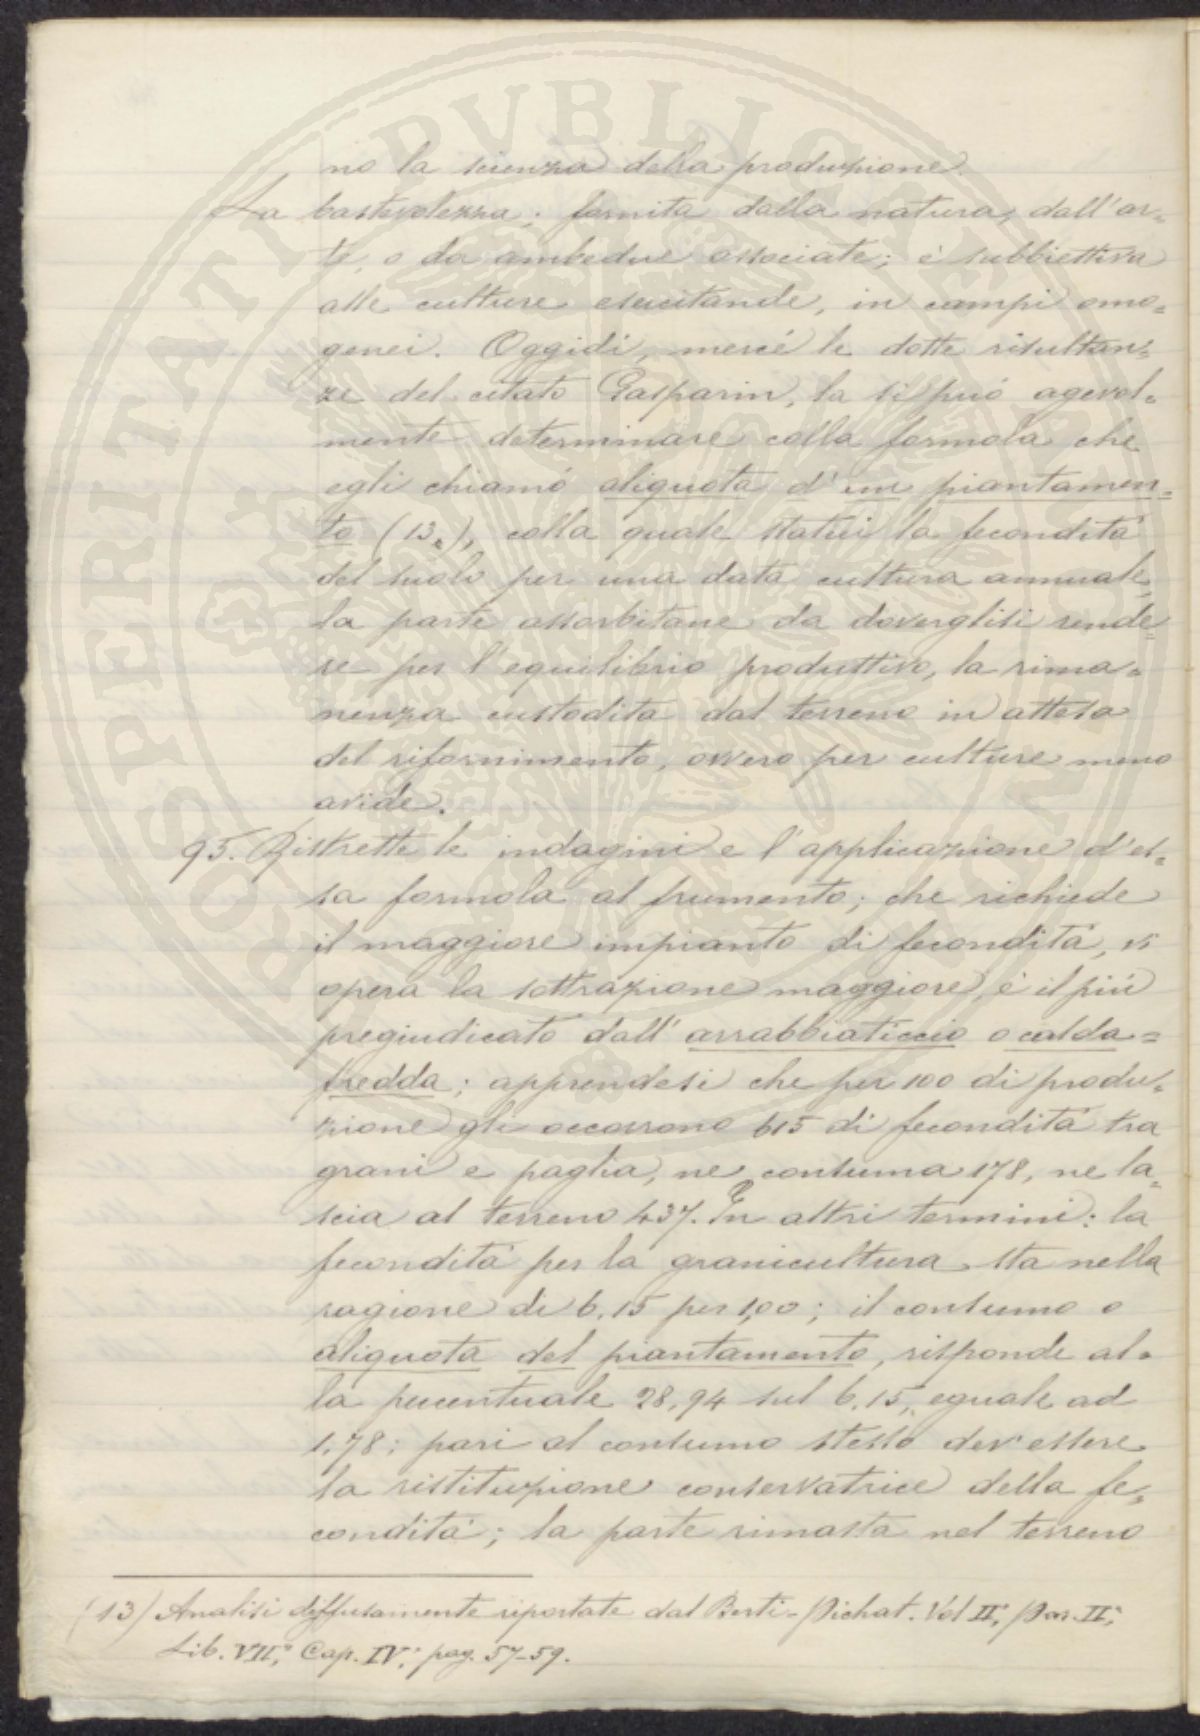 no la scienza della produzione.
La bastevolezza, fornita dalla natura, dall'ar=
te, o da ambedue associate; è subbiettiva
alle culture esercitande, in campi omo=
genei. Oggidì, mercé le dotte risultan=
ze del citato Gasparin, la si può agevol=
mente determinare colla formola che
egli chiamò aliquota d'un piantamen=
to (13), colla quale statuì la fecondità
del suolo per una data cultura annuale,
la parte assorbitane da doverglisi rende=
re per l'equilibrio produttivo, la rima=
nenza custodita dal terreno in attesa
del rifornimento, ovvero per culture meno
avide.
95. Ristrette le indagini e l'applicazione d'es=
sa formola al frumento; che richiede
il maggiore impianto di fecondità, vi
opera la sottrazione maggiore, è il più
pregiudicato dall'arrabbiaticcio o calda=
fredda; apprendesi che per 100 di produ=
zione gli occorrono 615 di fecondità tra
grani e paglia, ne consuma 178, ne la=
scia al terreno 437. In altri termini: la
fecondità per la granicultura sta nella
ragione di 6.15 per 1,00; il consumo o
aliquota del piantamento, risponde al=
la percentuale 28,94 sul 6.15, eguale ad
1.78; pari al consumo stesso dev'essere
la ristituzione conservatrice della fe=
condità; la parte rimasta nel terreno
(13) Analisi diffusamente riportate dal Berti-Pichat. Vol II°, Par. II°,
Lib. VII°, Cap. IV°, pag. 57-59.
PROSPERITATI PVBLICAE